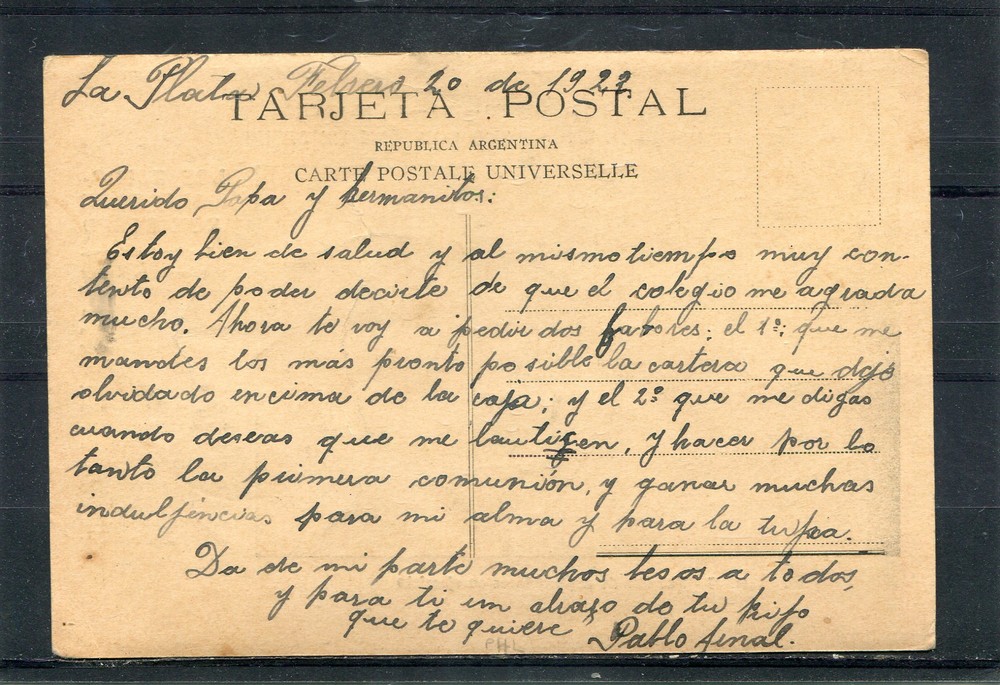 La Plata Febrero 20 de 1922
TARJETA POSTAL
REPUBLICA ARGENTINA
CARTE POSTALE UNIVERSELLE
Querido Papa y hermanitos:
Estoy bien de salud y al mismo tiempo muy con-
tento de poder decirte de que el colegio me agrada
mucho. Ahora te voy a pedir dos fabores; el 1º; que me
mandes los más pronto posible la cartera que dejé
olvidado encima de la caja; y el 2º que me digas
cuando deseas que me bauticen, y hacer por lo
tanto la primera comunión, y ganar muchas
indulgencias para mi alma y para la tuya.
Da de mi parte muchos besos a todos,
y para ti un abrazo de tu hijo
que te quiere Pablo